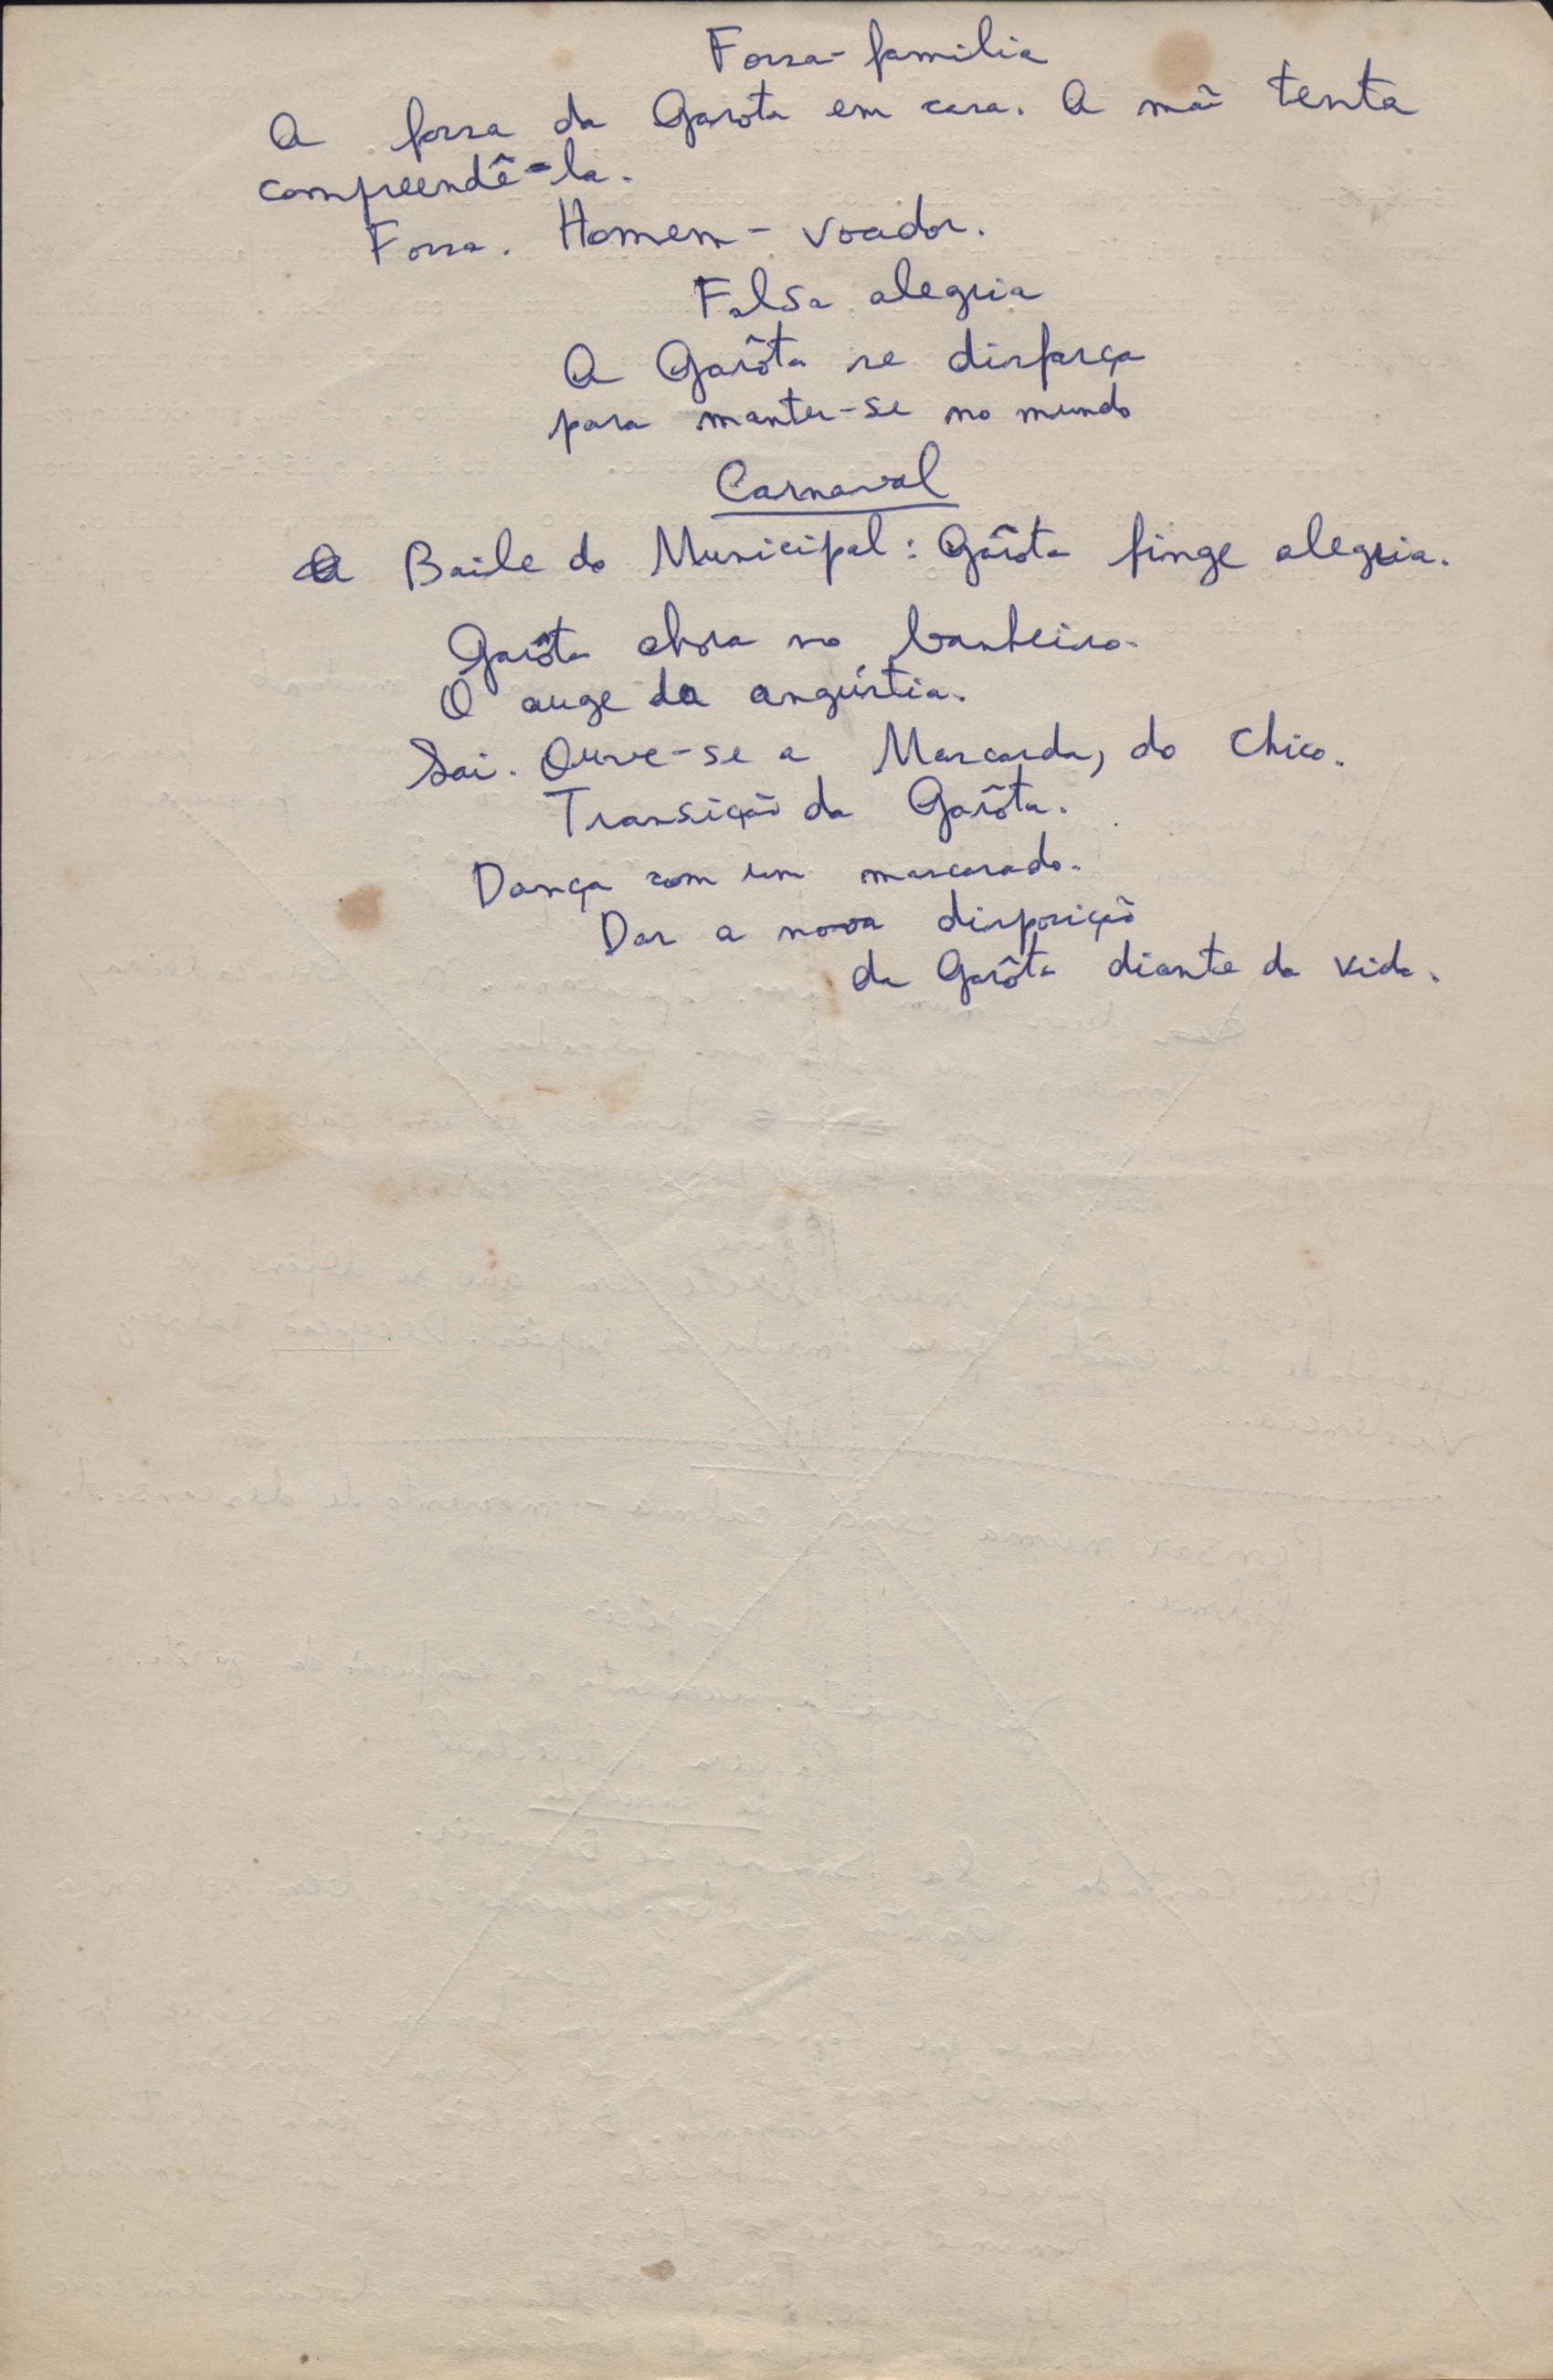 Fossa-familia
A fossa da Garota em casa. A mãe tenta
compreendê-la.
Fossa. Homem-voador.
Falsa alegria
A Garôta se disfarça
para manter-se no mundo
Carnaval
O Baile do Municipal: Garôta finge alegria.
Garôta chora no banheiro.
O auge da angústia.
Sai. Ouve-se a Mascarada, do Chico.
Transição da Garôta.
Dança com um mascarado.
Dar a nova disposição
da Garôta diante da vida.